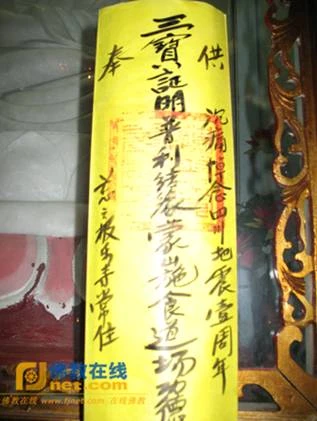 供
沉痛悼念四川地震壹周年
三寶証明普利蒙山施食道场功德
奉
寺常住
佛教在线
Fjnet.com
佛教在线 www.fjnet.com 在线佛教